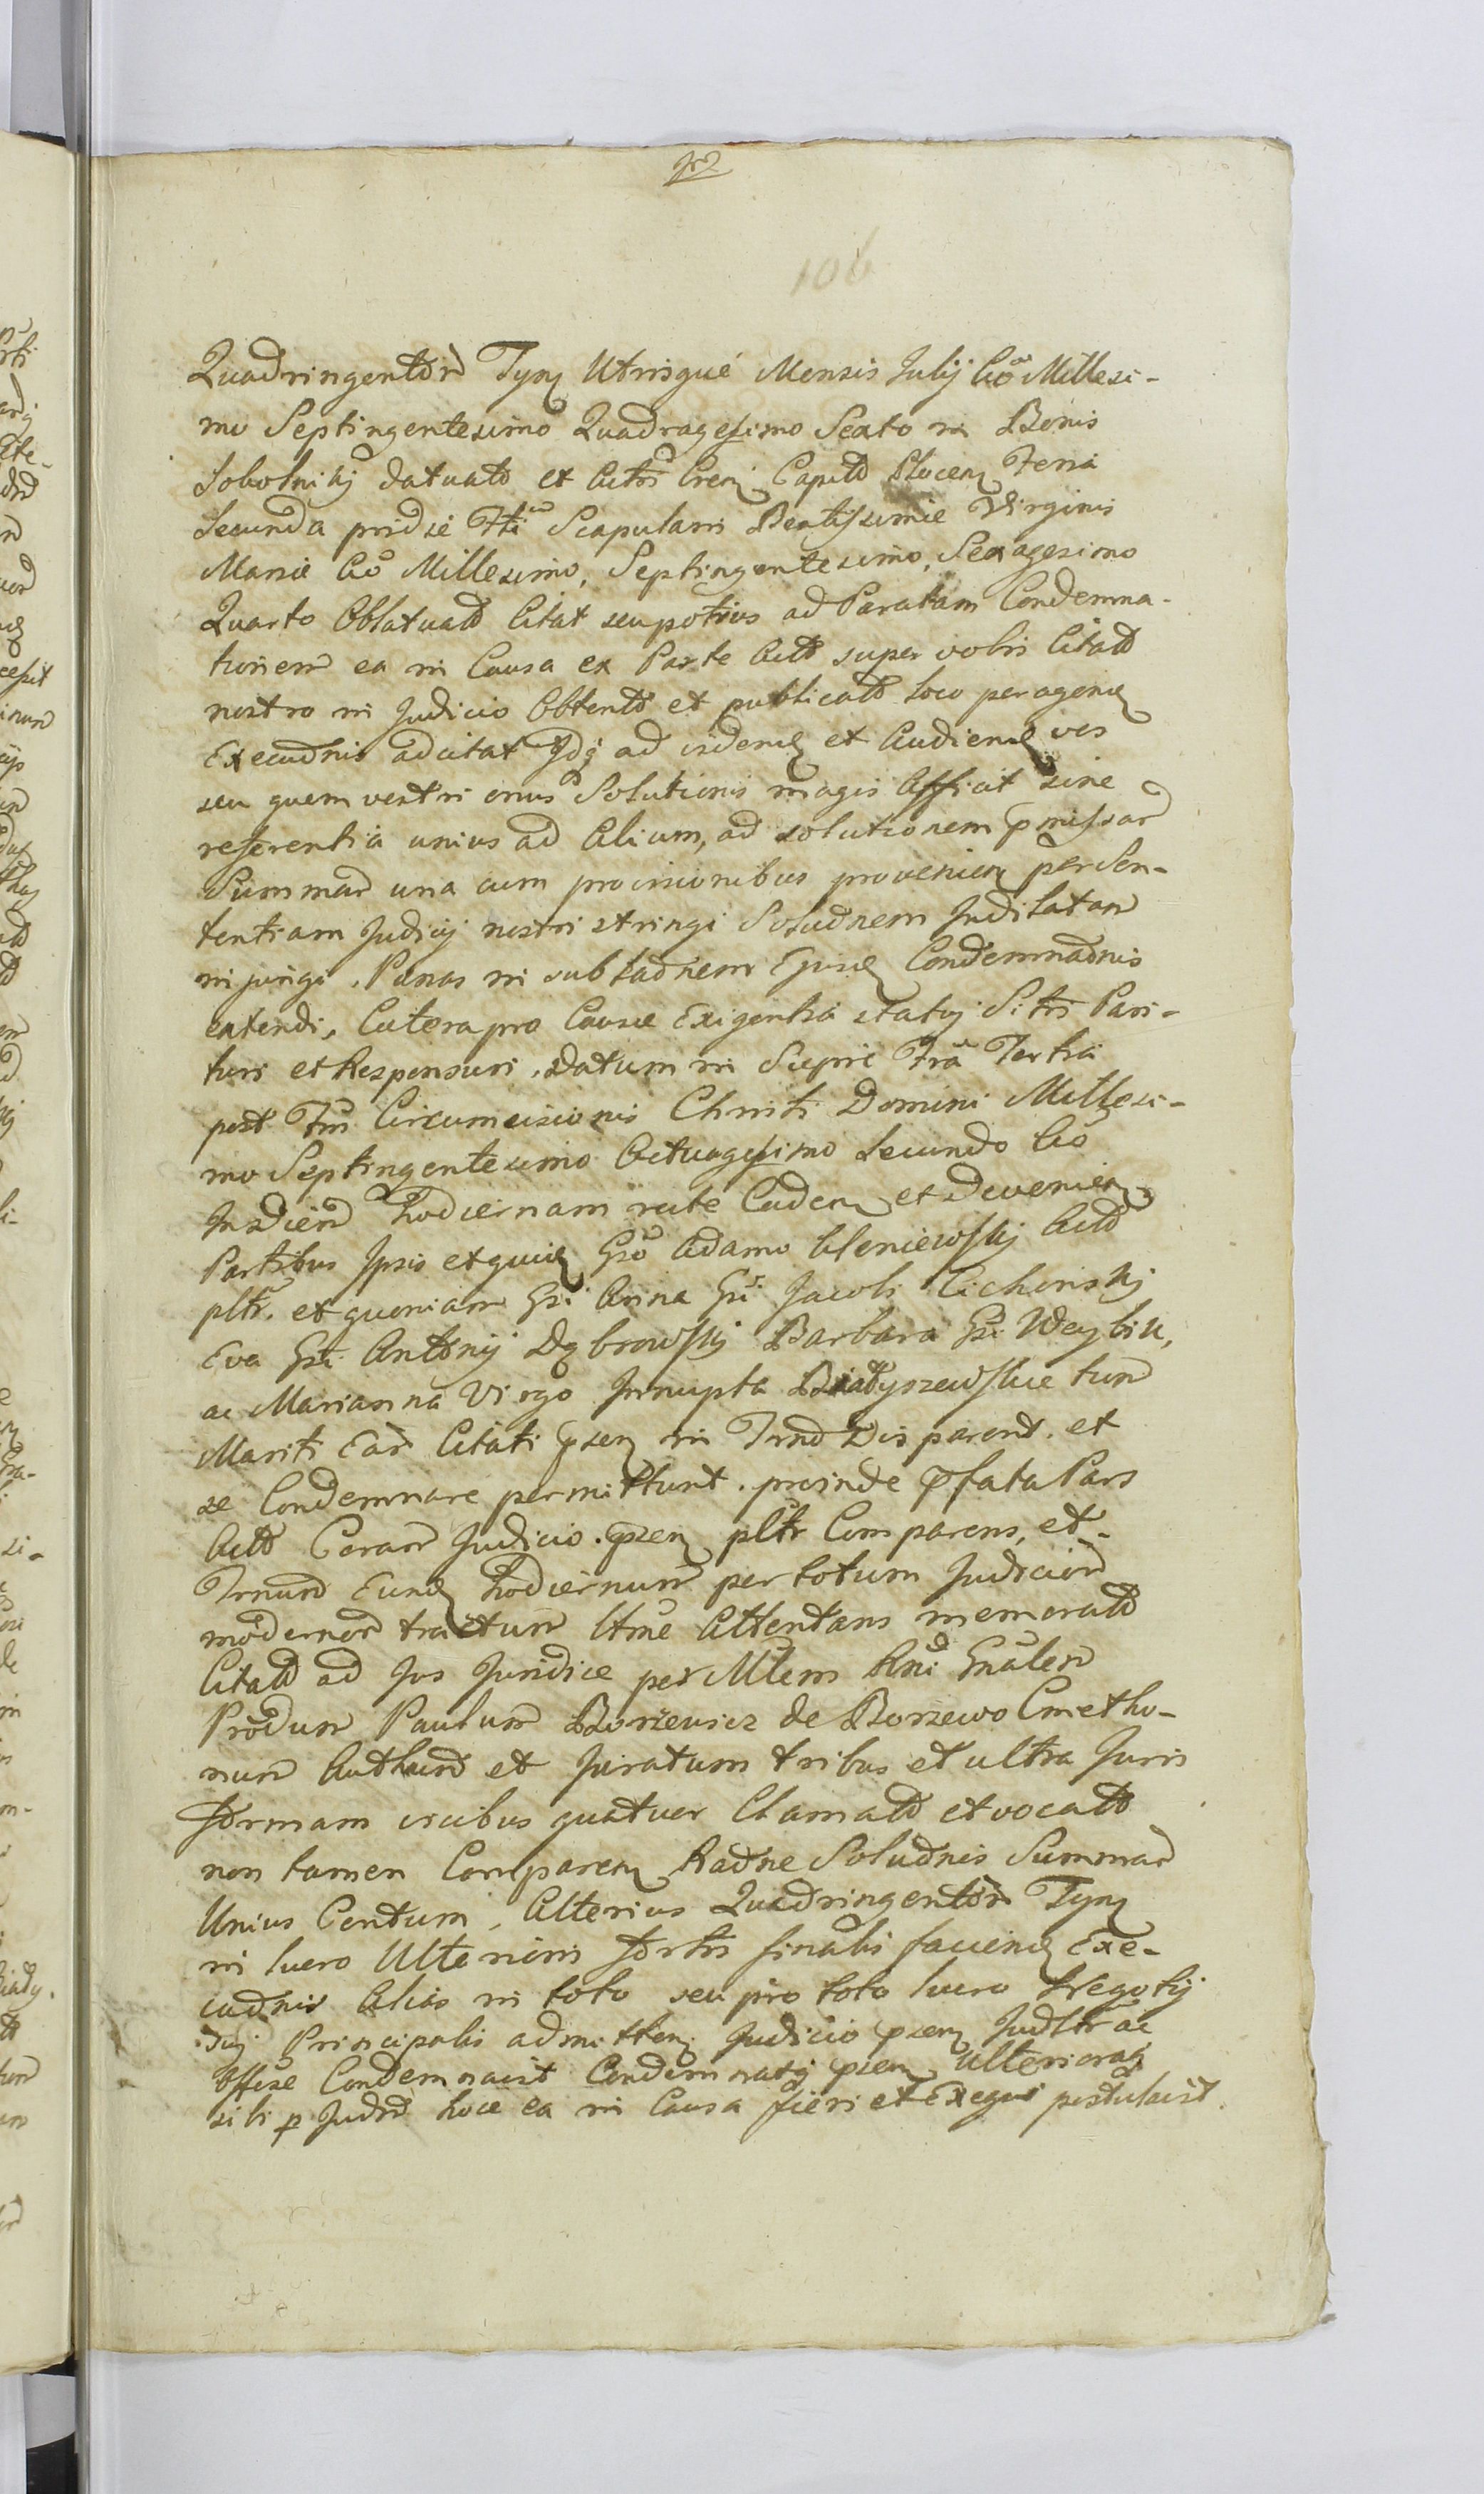 106
Quadringentor Tyn Utrisque Mensis Julij Ao Millesi-
mo Septingentesimo Quadragesimo Sexto in Bonis
Sobolniki datuato et Actis Cren Capitlo Plocen Feria
Secunda pridie Fti Scapularis Beatissimae Virginis
Mariae Ao Millesimo, Septingentesimo, Sexagesimo
Quarto Oblatuato Citat seu potius ad Paratam Condemna-
tionem ea in Causa ex Parte Acto super vobis Citato
nostro in Judicio Obtento et publicato loco peragen
Executnis adcitat Idq ad viden et Audien vos
seu quem vestri onus Solutionis magis Afficit sine
referentia unius ad Alium, ad solutionem pmissar
Summar una cum provisionibus provenien per Sen-
tentiam Judicij nostri stringi Solutnem Indilatam
injungi, Panas in sublatnem Ejusd Condemnatnis
extendi, Caetera pro Causae Exigentia statuj Sitis Pari-
turi et Responsuri, Datum in Sierpie Fra Tertia
post Ftm Circumcisionis Christi Domini Millesi-
mo Septingentesimo Actuagesimo Secundo Ao
In Diem hodiernam rite Caden et Devenien
Partibus Ipsis ex quiid Gso Adamo Aleniewskij Acto
pltr. et quoniam Gsi Anna Gsi Jacobi Cichonskij
Eva Gsi Antonij Dąbrowskij Barbara Gsi Weybik,
ac Marianna Virgo Innupta Białyszewskie tum
Mariti Ear Citati psen in Trno Disparent. et
se Condemnare permittunt. proinde pfata Pars
Acto Coram Judicio psen pltr Comparens, et
Trnum Eund hodiernum per totum Judicior
modernor tractum Ltme Attentans memorato
Citato ad Jus Juridice per Mtem Rni Gnalem
Produm Paulum Borzeusicz de Borzewo Cmetho-
num Authum et Juratum tribus et ultra Juris
formam vicibus quatuor Clamato et vocato
non tamen Comparen Ratne Solutnis Summar
Unius Centum, Alterius Quadringentor Tyn
in lucro Ulterioris fortis finalis faciend Exe-
cutnis Alias in toto seu pro toto lucro Negotij
sui Principalis admitten Judicio psen Judltr ac
Offise Condemnavit Condemnatq psen, Ulterioraq
sibi p Judm hocce ea in Causa fieri et Exequi postulavit.